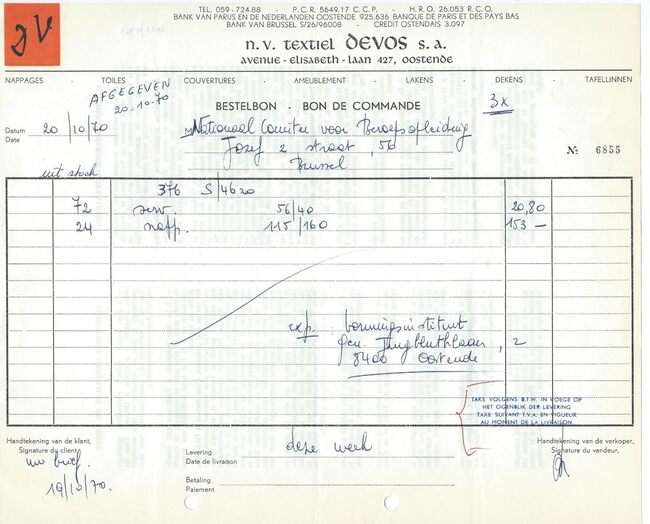 JV
TEL. 059-724.88 - P.C.R. 5649.17 C.C.P. - H.R.O. 26.053 R.C.O.
BANK VAN PARIJS EN DE NEDERLANDEN OOSTENDE 925.636 BANQUE DE PARIS ET DES PAYS BAS
BANK VAN BRUSSEL S/26/96008 - CREDIT OSTENDAIS 3.097
n.v. textiel DEVOS s.a.
AVENUE - ELISABETH - LAAN 427, OOSTENDE
NAPPAGES - TOILES - COUVERTURES - AMEUBLEMENT - LAKENS - DEKENS - TAFELLINNEN
AFGEGEVEN
20-10-70
BESTELBON - BON DE COMMANDE
3x
Datum
Date
20/10/70
M Nationaal Comitee voor Beroepsopleiding
Jozef 2 straat, 56
Brussel
№ 6855
uit stock
376 S/4620
72 serv. 56/40 20,80
24 napp. 115/160 153 —
exp:
gen. Jungbluthlaan, 2
8400 Oostende
TAKS VOLGENS B.T.W. IN VOEGE OP
HET OGENBLIK DER LEVERING
TAXE SUIVANT T.V.A. EN VIGUEUR
AU MOMENT DE LA LIVRAISON
Handtekening van de klant,
Signature du client,
uw brief.
19/10/70.
Levering
Date de livraison
deze week
Betaling
Paiement
Handtekening van de verkoper,
Signature du vendeur,